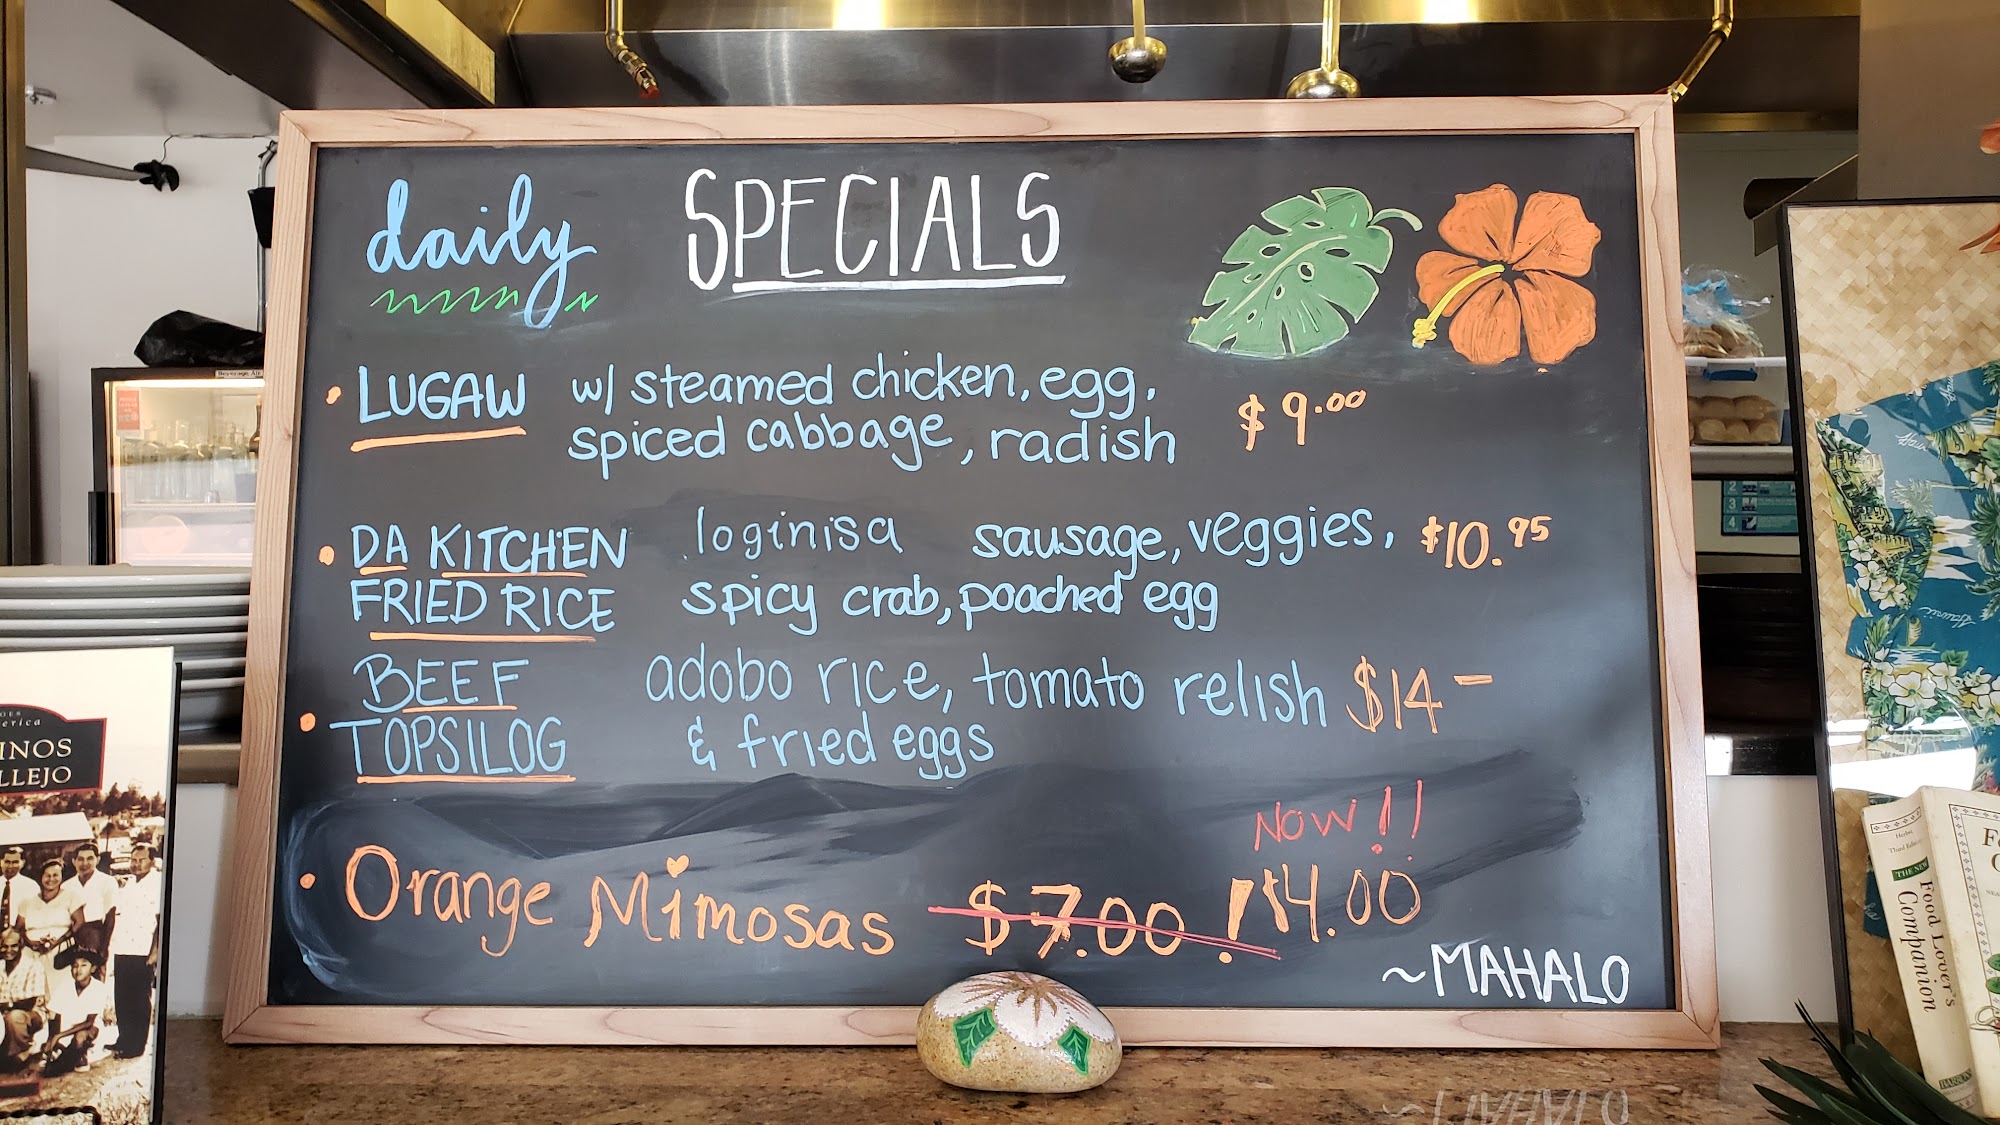 daily SPECIALS
• LUGAW w/ steamed chicken, egg, $9.00
spiced cabbage, radish
• DA KITCHEN loginisa sausage, veggies, $10.95
FRIED RICE spicy crab, poached egg
BEEF adobo rice, tomato relish $14-
• TOPSILOG & fried eggs
NOW!!
• Orange Mimosas $7.00! $4.00
~MAHALO
erica
INOS
LLEJO
Herbst
THE NEW
Food Lover's
Companion
2
3
4